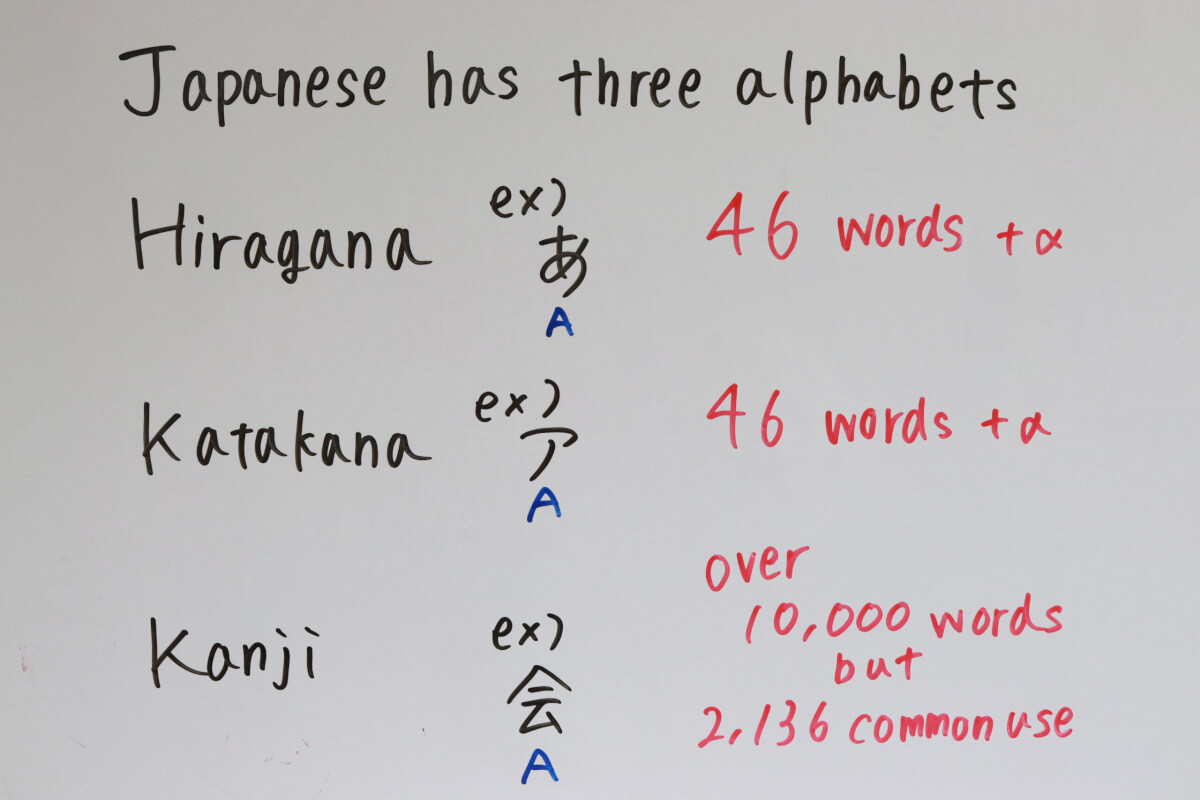 Japanese has three alphabets
Hiragana ex) あ A 46 words +α
Katakana ex) ア A 46 words +α
Kanji ex) 会 A over
10,000 words
but
2,136 common use